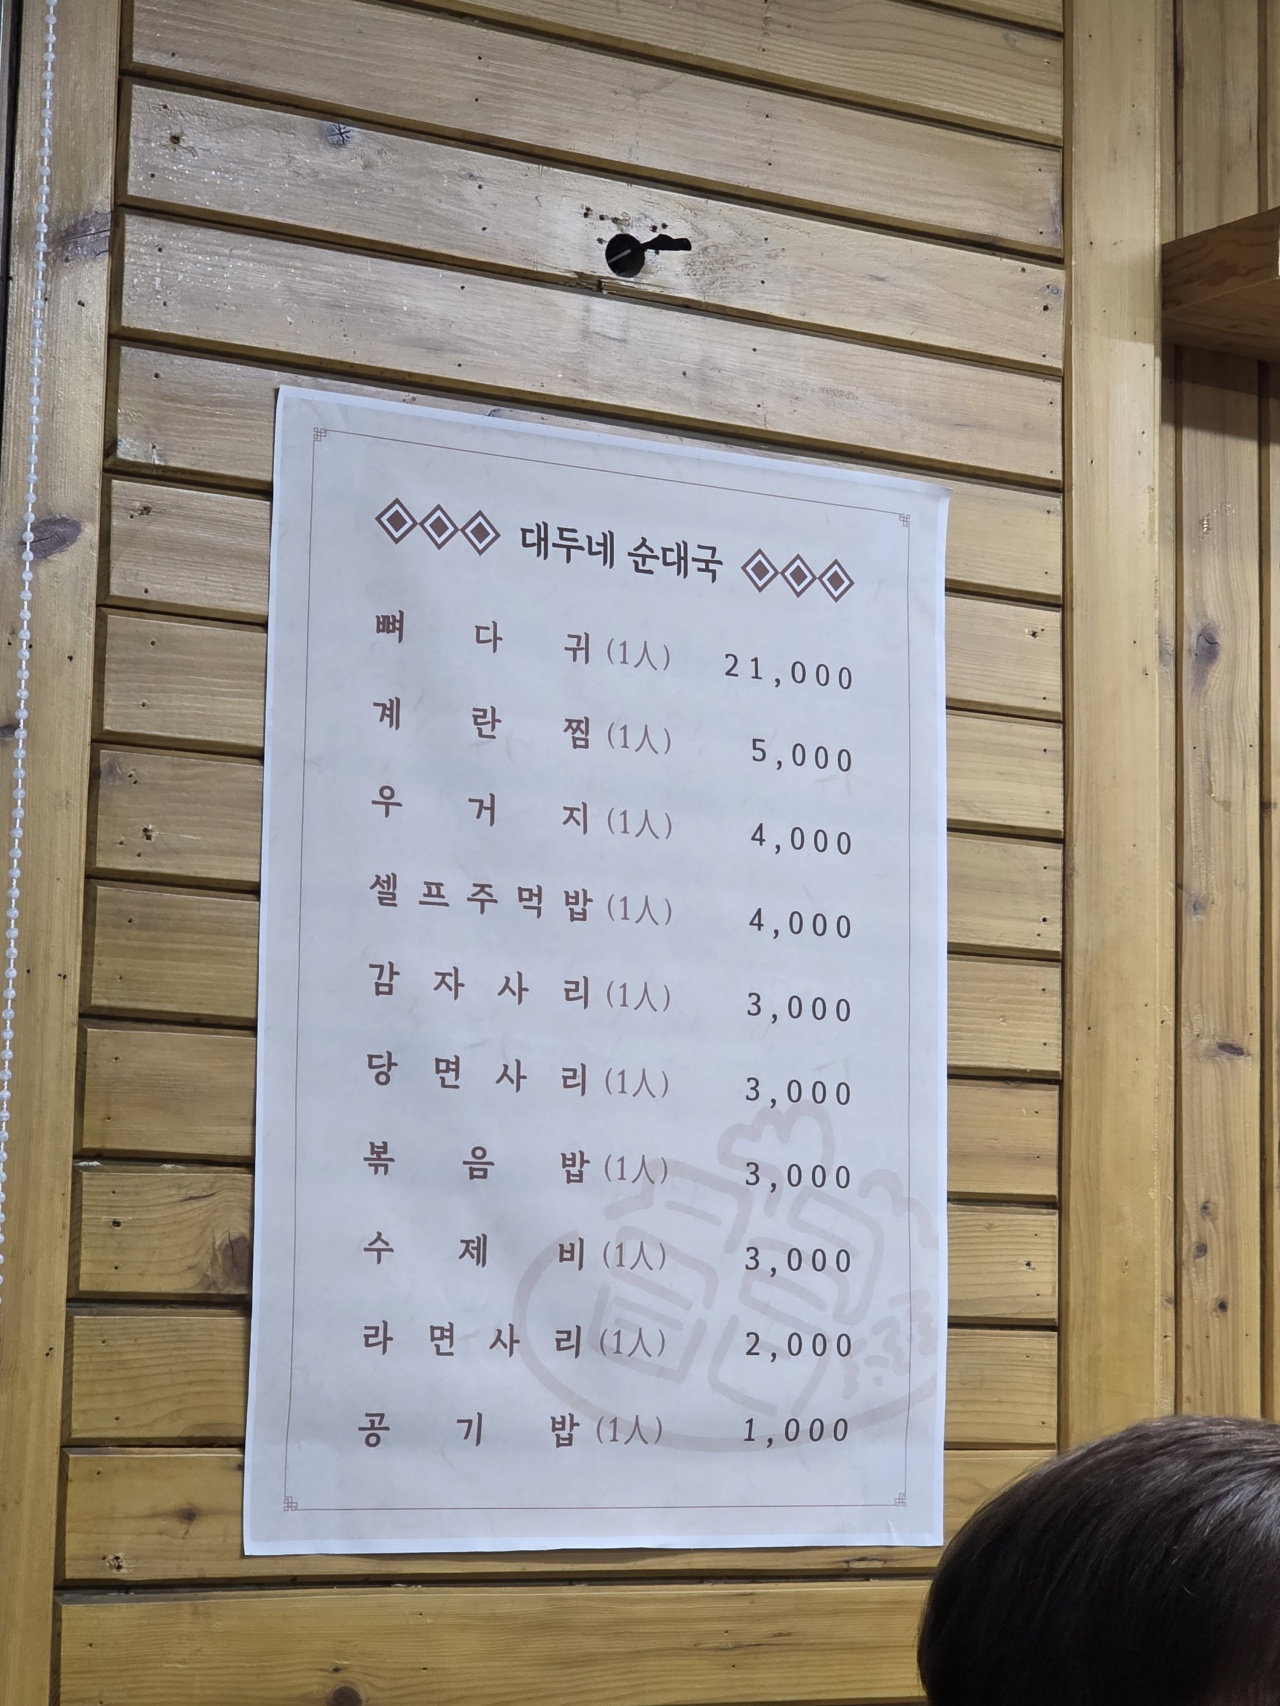 대두네 순대국
뼈다귀(1人) 21,000
계란찜(1人) 5,000
우거지(1人) 4,000
셀프주먹밥(1人) 4,000
감자사리(1人) 3,000
당면사리(1人) 3,000
볶음밥(1人) 3,000
수제비(1人) 3,000
라면사리(1人) 2,000
공기밥(1人) 1,000